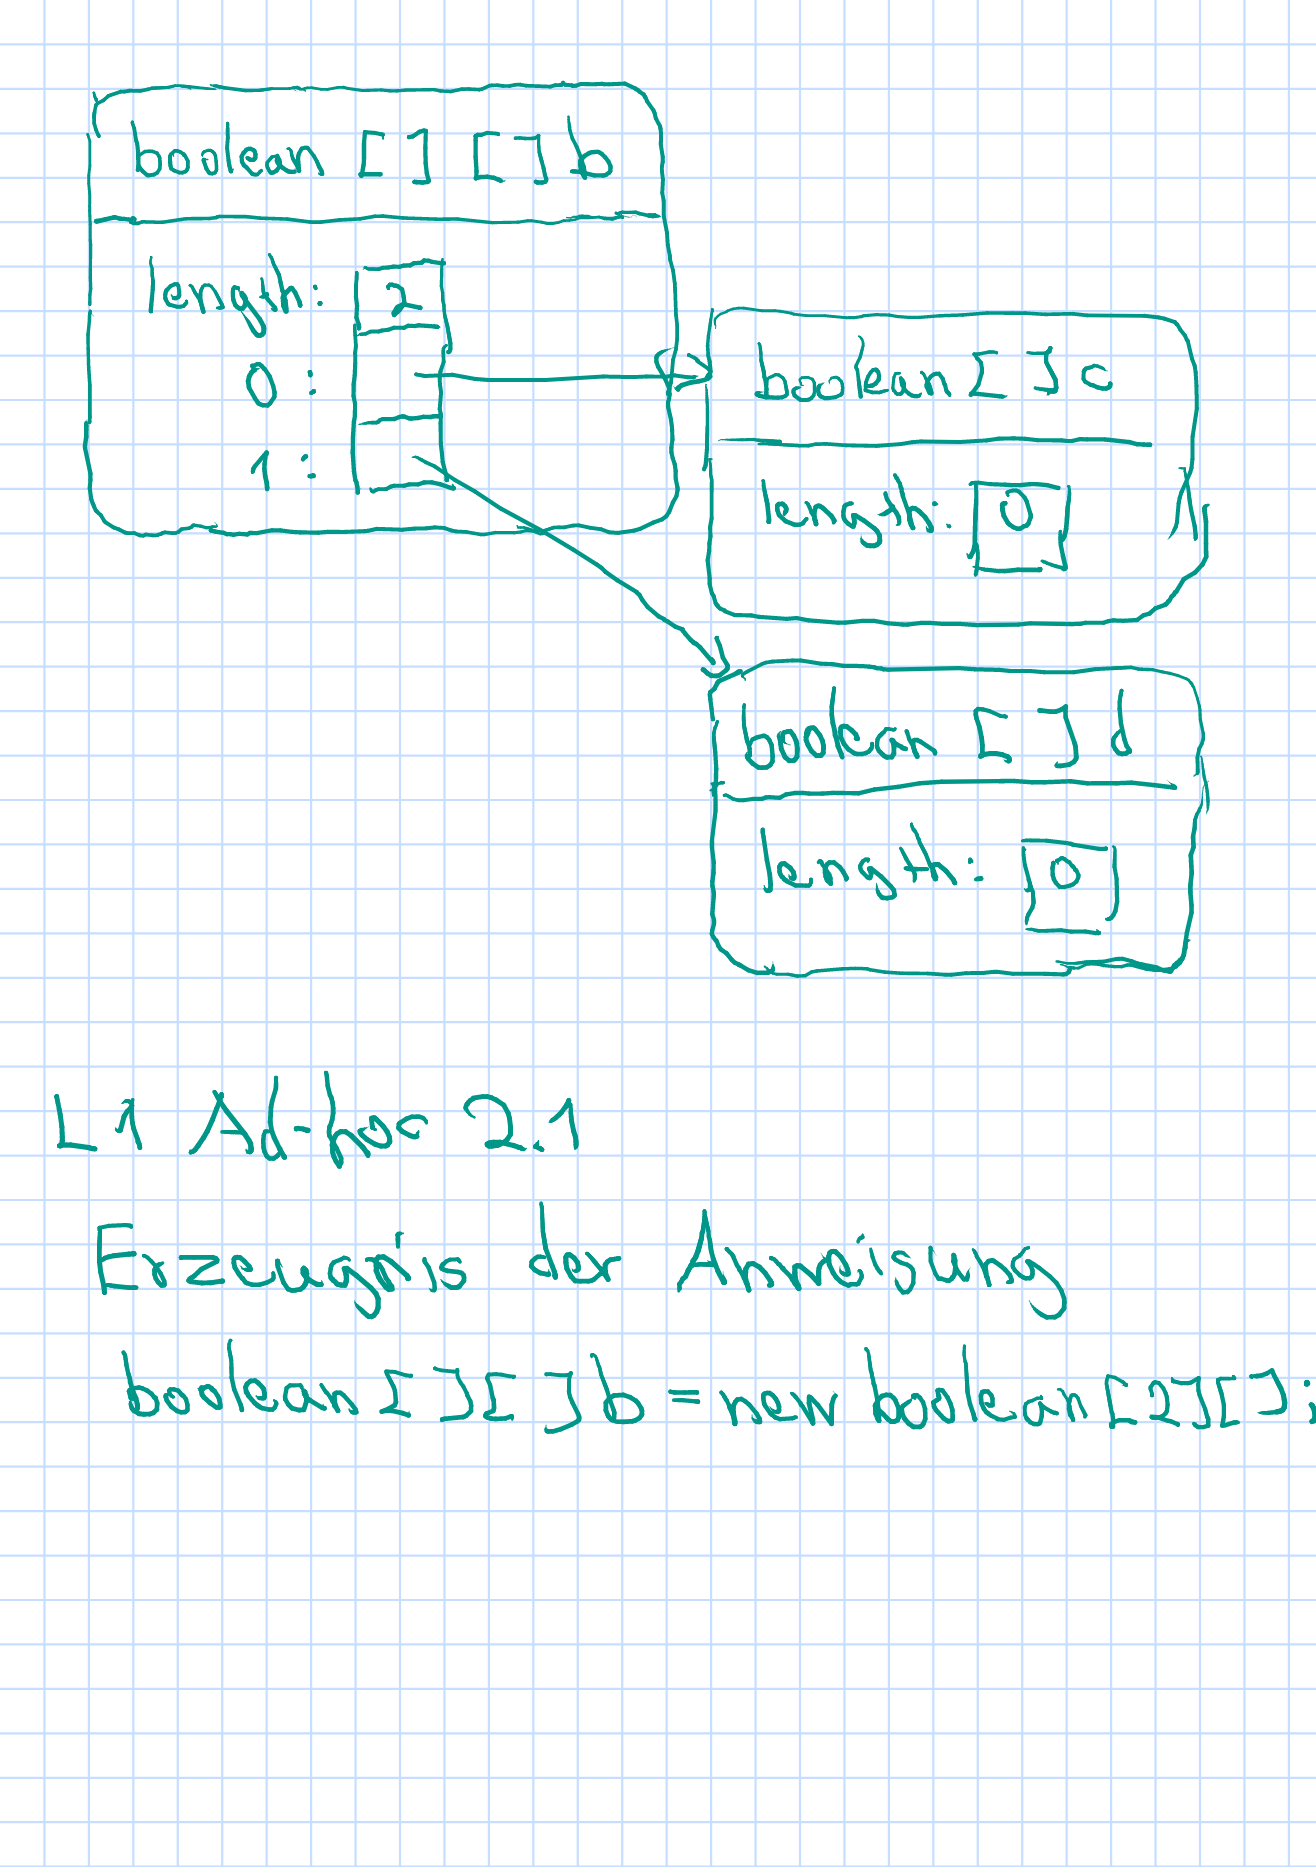 boolean [] [] b
length: 2
0:
1:
boolean [ ] c
length: 0
boolean [ ] d
length: 0
L1 Ad-hoc 2.1
Erzeugnis der Anweisung
boolean [ ][ ] b = new boolean [2][ ];